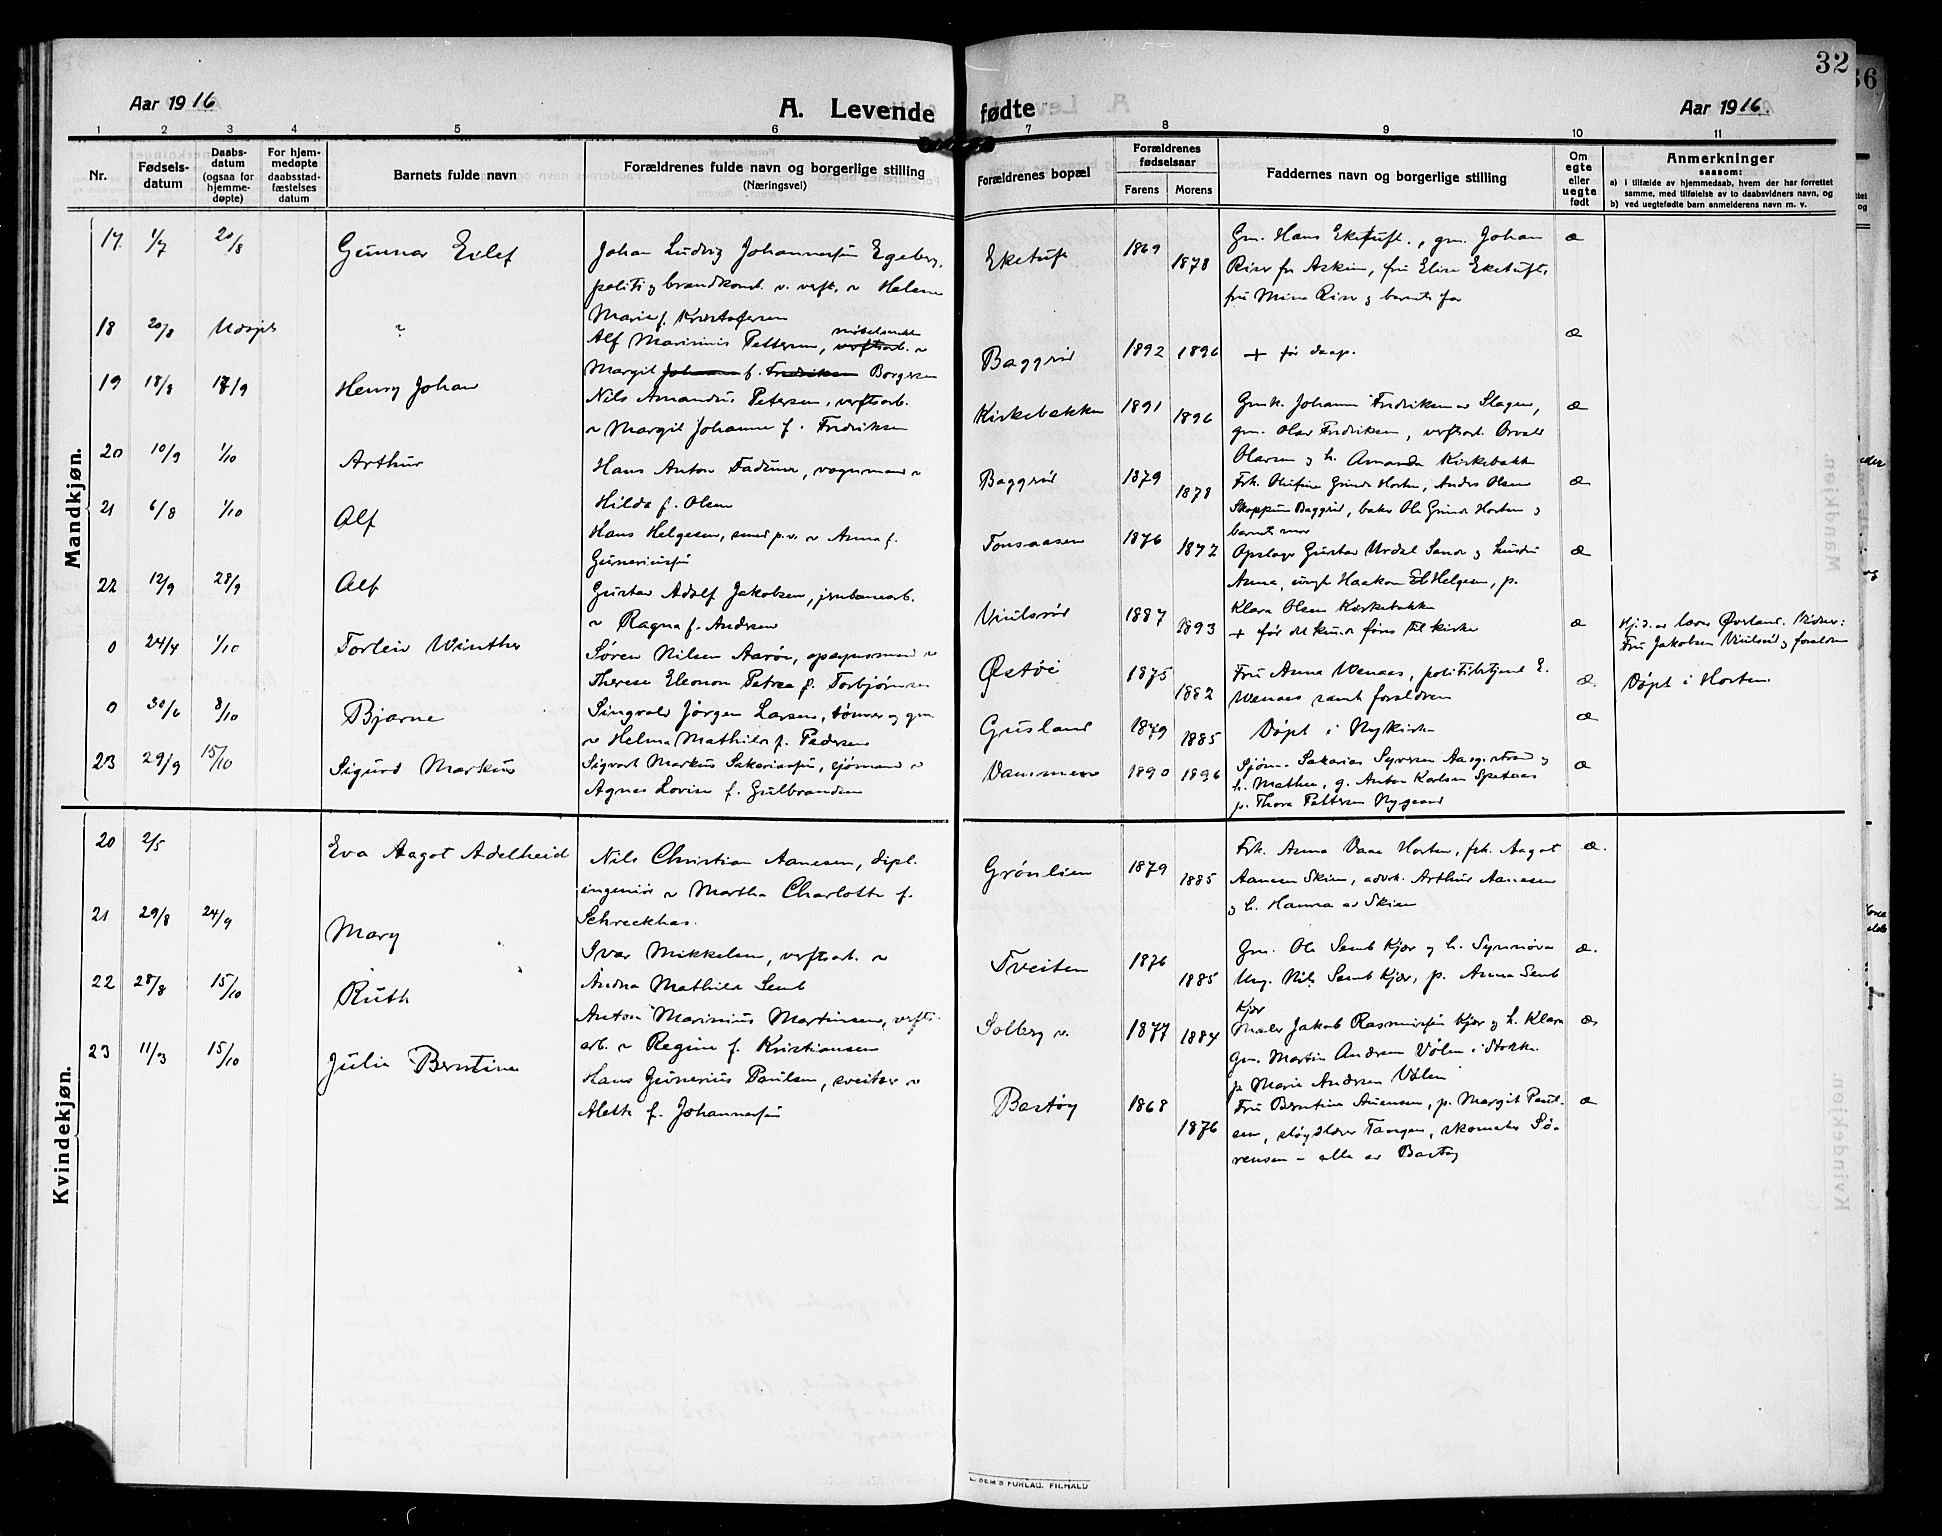 32
Aar 1916
A. Levende fødte
Aar 1916.
1 2 3 4 5 6 7 8 9 10 11
Nr.
Fødsels-
datum
Daabs-
datum
(ogsaa for
hjemme-
døpte)
For hjem-
medøpte
daabsstad-
fæstelses
datum
Barnets fulde navn
Forældrenes fulde navn og borgerlige stilling
(Næringsvei)
Forældrenes bopæl
Forældrenes
fødselsaar
Farens Morens
Faddernes navn og borgerlige stilling
Om
egte
eller
uegte
født
Anmerkninger
saasom:
a) i tilfælde av hjemmedaab, hvem der har forrettet
samme, med tilføielse av to daabsvidners navn, og
b) ved uegtefødte barn anmelderens navn m. v.
Mandkjøn.
17. 1/7 20/8 Gunnar Eilef
Johan Ludvig Johannessen Egeberg,
politi og brandkonst. v. verft. Helene
Marie f. Kristofersen
Eketuft 1869 1878
Gm. Hans Eketuft., gm. Johan
Riser fr Askim, fru Elise Eketuft,
fru Mina Riser og barnets far
æ
18 20/8 Udøpt "
Alf Marinius Pettersen, verftsarb.
Margit Johanne f. Fredriksen Borgersen
Baggrød 1892 1896
+ før daap.
æ
19 18/8 17/9 Henry Johan
Nils Amandus Petersen, verftsarb.
Margit Johanne f. Fredriksen
Kirkebakken 1891 1896
Gmk. Johanne Fredriksen av Slagen,
gm. Olav Fredriksen, verftsarb. Orvald
Olavsen og h. Amanda Kirkebakk
æ
20 10/9 1/10 Arthur
Hans Anton Fadum, vognmand
Hilda f. Olsen
Baggrød 1879 1878
Frk. Olufine Grinde Horten, Anders Olsen
Skoppum Baggrød, baker Ole Grinde Horten og
barnets mor
æ
21 6/8 1/10 Alf
Hans Helgesen, smed p.v. Anna f.
Gunerius
Tonsaasen 1876 1872
Opslager Gustav Urdal Sande
Anna, ungk Haakon Helgesen, p.
Klara Olsen Kirkebakken
æ
22 12/9 28/9 Alf
Gustav Adolf Jakobsen, jernbanearb.
Ragna f. Andersen
Viulsrød 1887 1893
+ før det kunde føres til kirke
æ
Hj.d. av lærer Øverland. Vidner:
Fru Jakobsen Viulsrød og foreldrene
0 24/4 1/10 Torleiv Winther
Søren Nilsen Aarøe, opsynsmand
Therese Eleonor Petrea f. Torbjørnsen
Østøi 1875 1882
Fru Anna Wenaas, politibetjent E.
Wenaas samt forældrene
æ.
Døpt i Horten
0 30/6 8/10 Bjarne
Singvald Jørgen Larsen, tømrer og gm.
Helma Mathilde f. Pedersen
Gusland 1879 1885
Døpt i Nykirke
æ
23 29/9 15/10 Sigurd Markus
Sigvart Markus Sakariassen, sjømand
Agnes Lovise f. Gulbrandsen
Vammen 1890 1896
Sjøm. Sakarias Syversen Aasgstrand og
h. Mathea, g. Anton Karlsen
p. Thora Pettersen Nygaard
æ
Kvindekjøn.
20 2/5 Eva Aagot Adelheid
Nils Christian Aanesen, dipl.
ingeniør Martha Charlotte f.
Schreckhas.
Grønlien 1879 1885
Frk. Anna Vaae Horten, frk. Aagot
Aanesen Skien, advk. Arthur Aanesen
og h. Hanna av Skien
æ.
21 29/8 24/9 Mary
Ivar Mikkelsen, verftsarb.
Andrea Mathilde Semb
Tveiten 1876 1885
Gm. Ole Semb Kjær og h. Synnøva
Ung. Nils Semb Kjær, p. Anna Semb
Kjær
æ.
22 28/8 15/10 Ruth
Anton Marinius Martinsen, verfts-
arb. Regine f. Kristiansen
Solberg v. 1877 1884
Maler Jakob Rasmussen Kjær og h. Klara
Gm. Martin Andersen Vølen i Stokke
p. Marie Andersen Vølen
æ
23 11/3 15/10 Julie Berntine
Hans Gunerius Paulsen, sveitser
Aleth f. Johannessen
Bastøy 1868 1876
Fru Berntine Auensen, p. Margit Paul-
sen, sløydlærer Tangen, skomaker Sø-
rensen – alle av Bastøy
æ
E. SEM'S FORLAG, FR.HALD